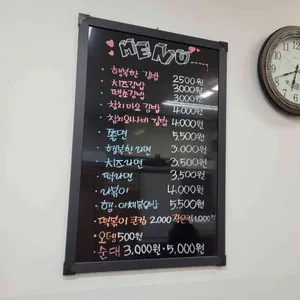 MENU
· 행복한 김밥 2500원
· 치즈김밥 3000원
· 땡초김밥 3000원
· 참치마요 김밥 4.000원
· 참치와사비 김밥 4.000원
· 쫄면 5,500원
· 행복한라면 3.000원
· 치즈라면 3,500원
· 떡라면 3,500원
· 라볶이 4.000원
· 햄·야채볶음밥 5.500원
· 떡볶이 큰컵 2.000 작은컵1,000원
· 오뎅 500원
· 순대 3.000원·5,000원